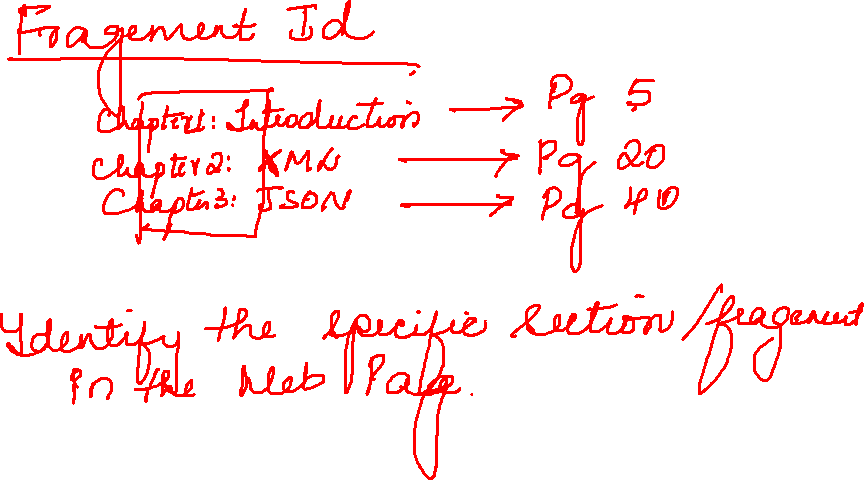 Fragement Id
Chapter1: Introduction → Pg 5
Chapter 2: XML → Pg 20
Chapter3: JSON → Pg 40
Identify the specific section/fragement
in the Web Page.